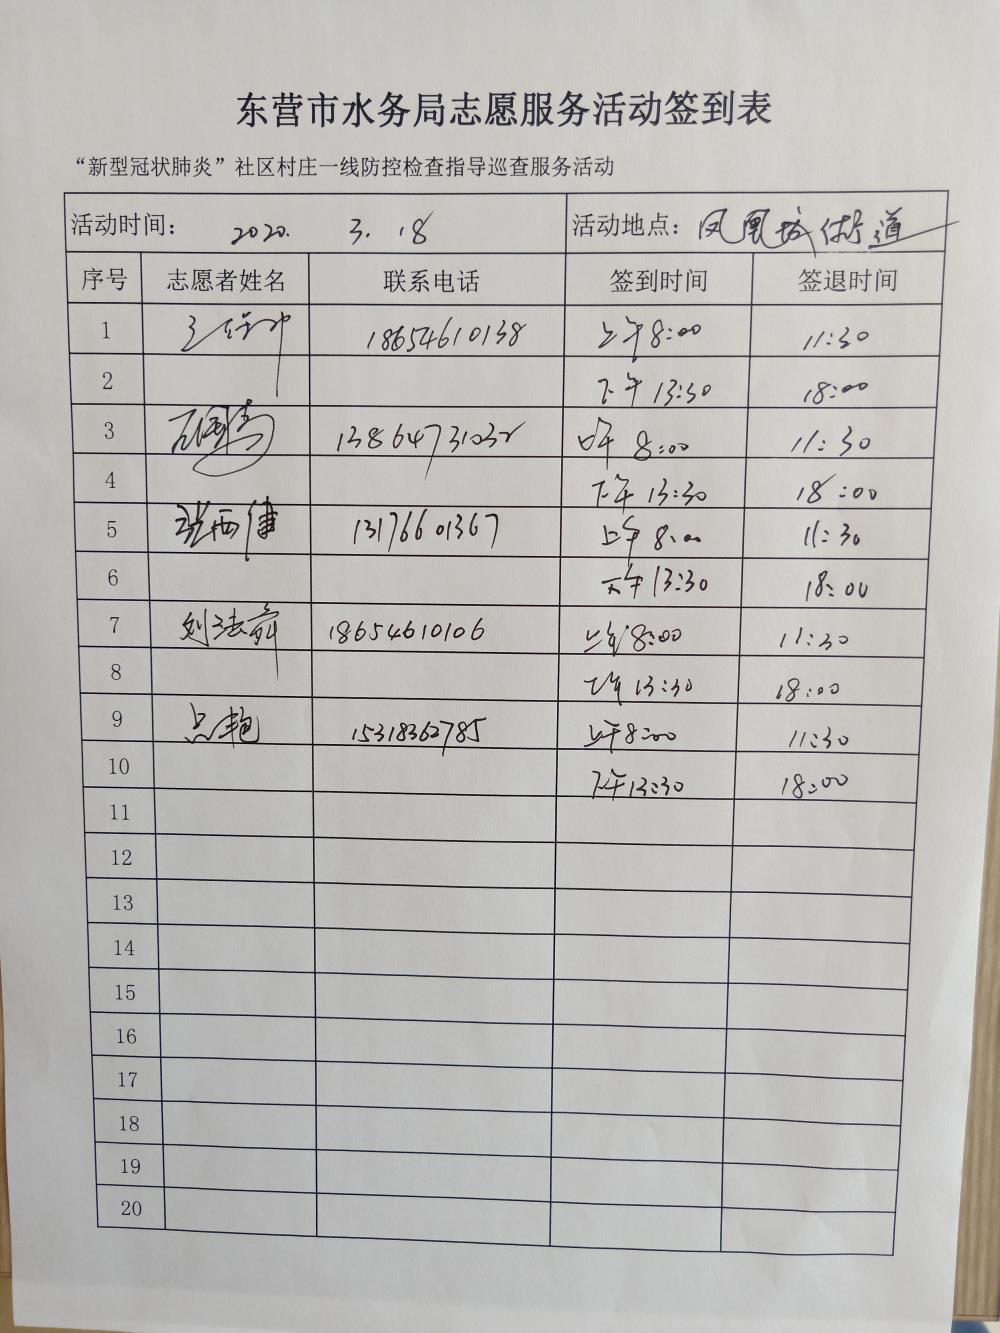 东营市水务局志愿服务活动签到表
“新型冠状肺炎”社区村庄一线防控检查指导巡查服务活动
活动时间： 2020. 3. 18 活动地点：凤凰城街道
序号 志愿者姓名 联系电话 签到时间 签退时间
1 18654610138 上午8:00 11:30
2 下午13:30 18:00
3 13864731032 上午 8:00 11:30
4 下午 13:30 18:00
5 张西健 13176601367 上午 8:00 11:30
6 下午13:30 18:00
7 刘法舜 18654610106 上午8:00 11:30
8 下午 13:30 18:00
9 15318362785 上午8:00 11:30
10 下午13:30 18:00
11
12
13
14
15
16
17
18
19
20